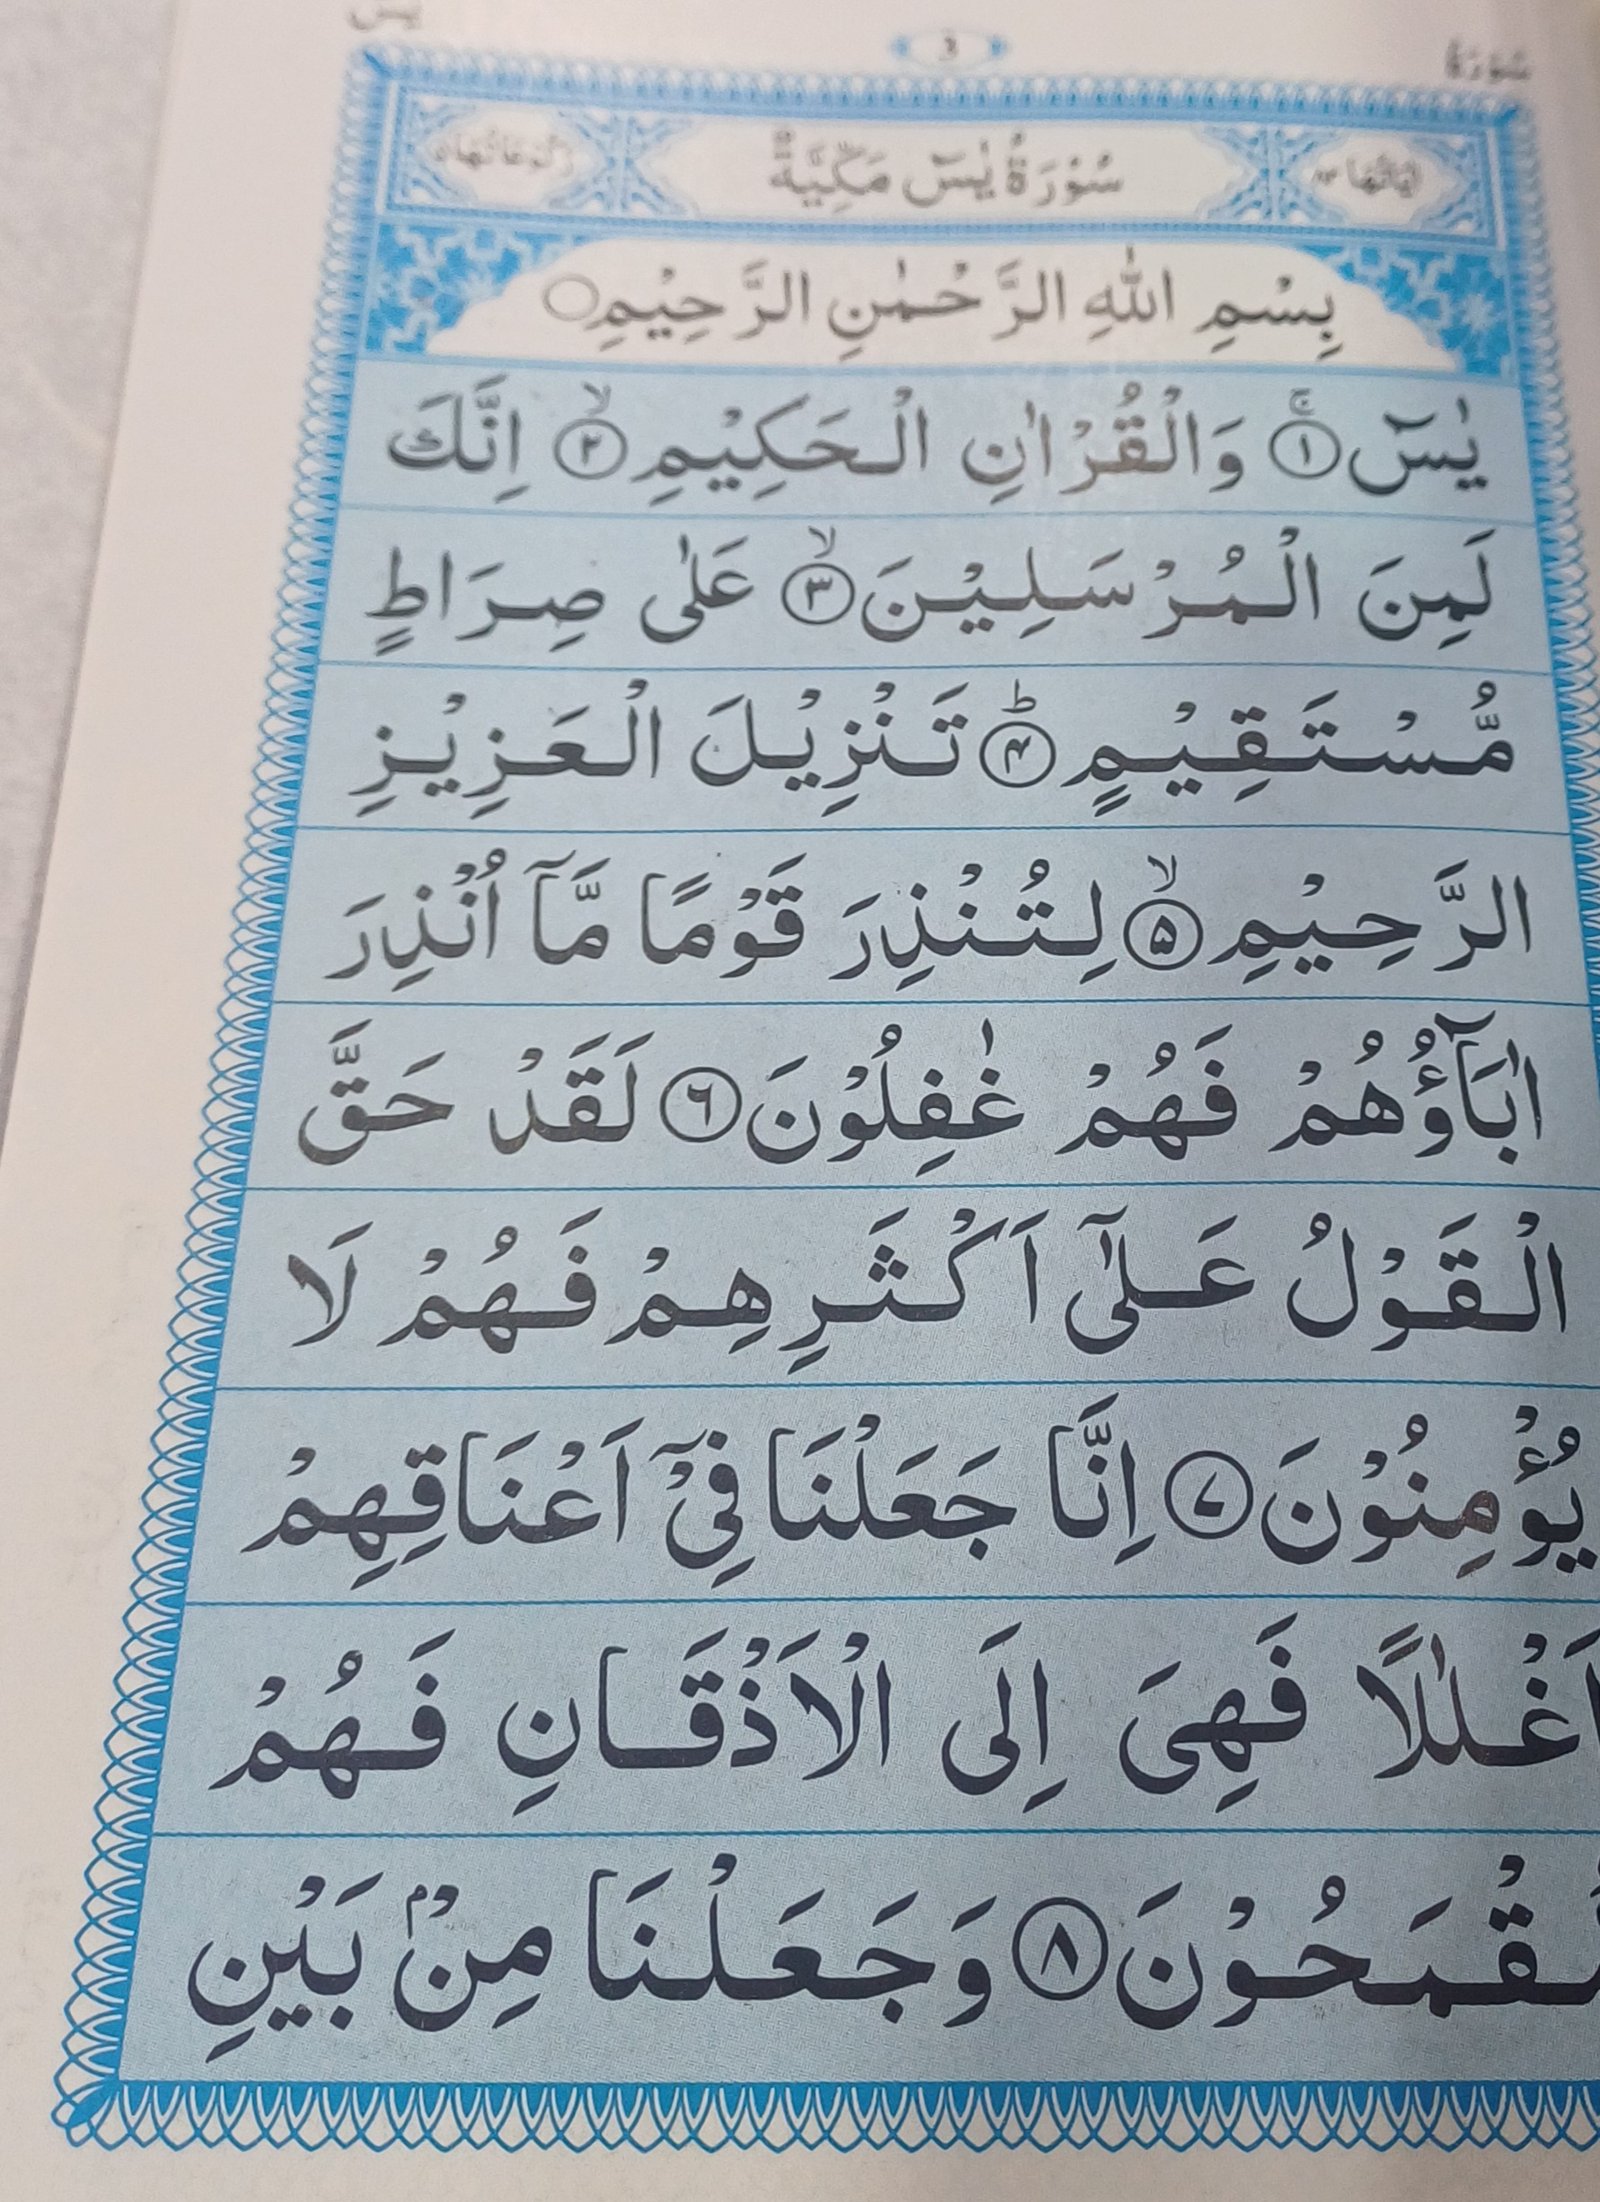 سُوْرَةُ 3 يٰسٓ
اٰيَاتُهَا ٨٣ سُوْرَةُ يٰسٓ مَكِّيَّةٌ رُكُوْعَاتُهَا ٥
بِسْمِ اللّٰهِ الرَّحْمٰنِ الرَّحِيْمِ ○
يٰسٓ ۚ﴿۱﴾ وَالْقُرْاٰنِ الْحَكِيْمِ ۙ﴿۲﴾ اِنَّكَ
لَمِنَ الْمُرْسَلِيْنَ ۙ﴿۳﴾ عَلٰى صِرَاطٍ
مُّسْتَقِيْمٍ ؕ﴿۴﴾ تَنْزِيْلَ الْعَزِيْزِ
الرَّحِيْمِ ۙ﴿۵﴾ لِتُنْذِرَ قَوْمًا مَّاۤ اُنْذِرَ
اٰبَآؤُهُمْ فَهُمْ غٰفِلُوْنَ ﴿۶﴾ لَقَدْ حَقَّ
الْقَوْلُ عَلٰۤى اَكْثَرِهِمْ فَهُمْ لَا
يُؤْمِنُوْنَ ﴿۷﴾ اِنَّا جَعَلْنَا فِيْۤ اَعْنَاقِهِمْ
اَغْلٰلًا فَهِىَ اِلَى الْاَذْقَانِ فَهُمْ
مُّقْمَحُوْنَ ﴿۸﴾ وَجَعَلْنَا مِنْۢ بَيْنِ